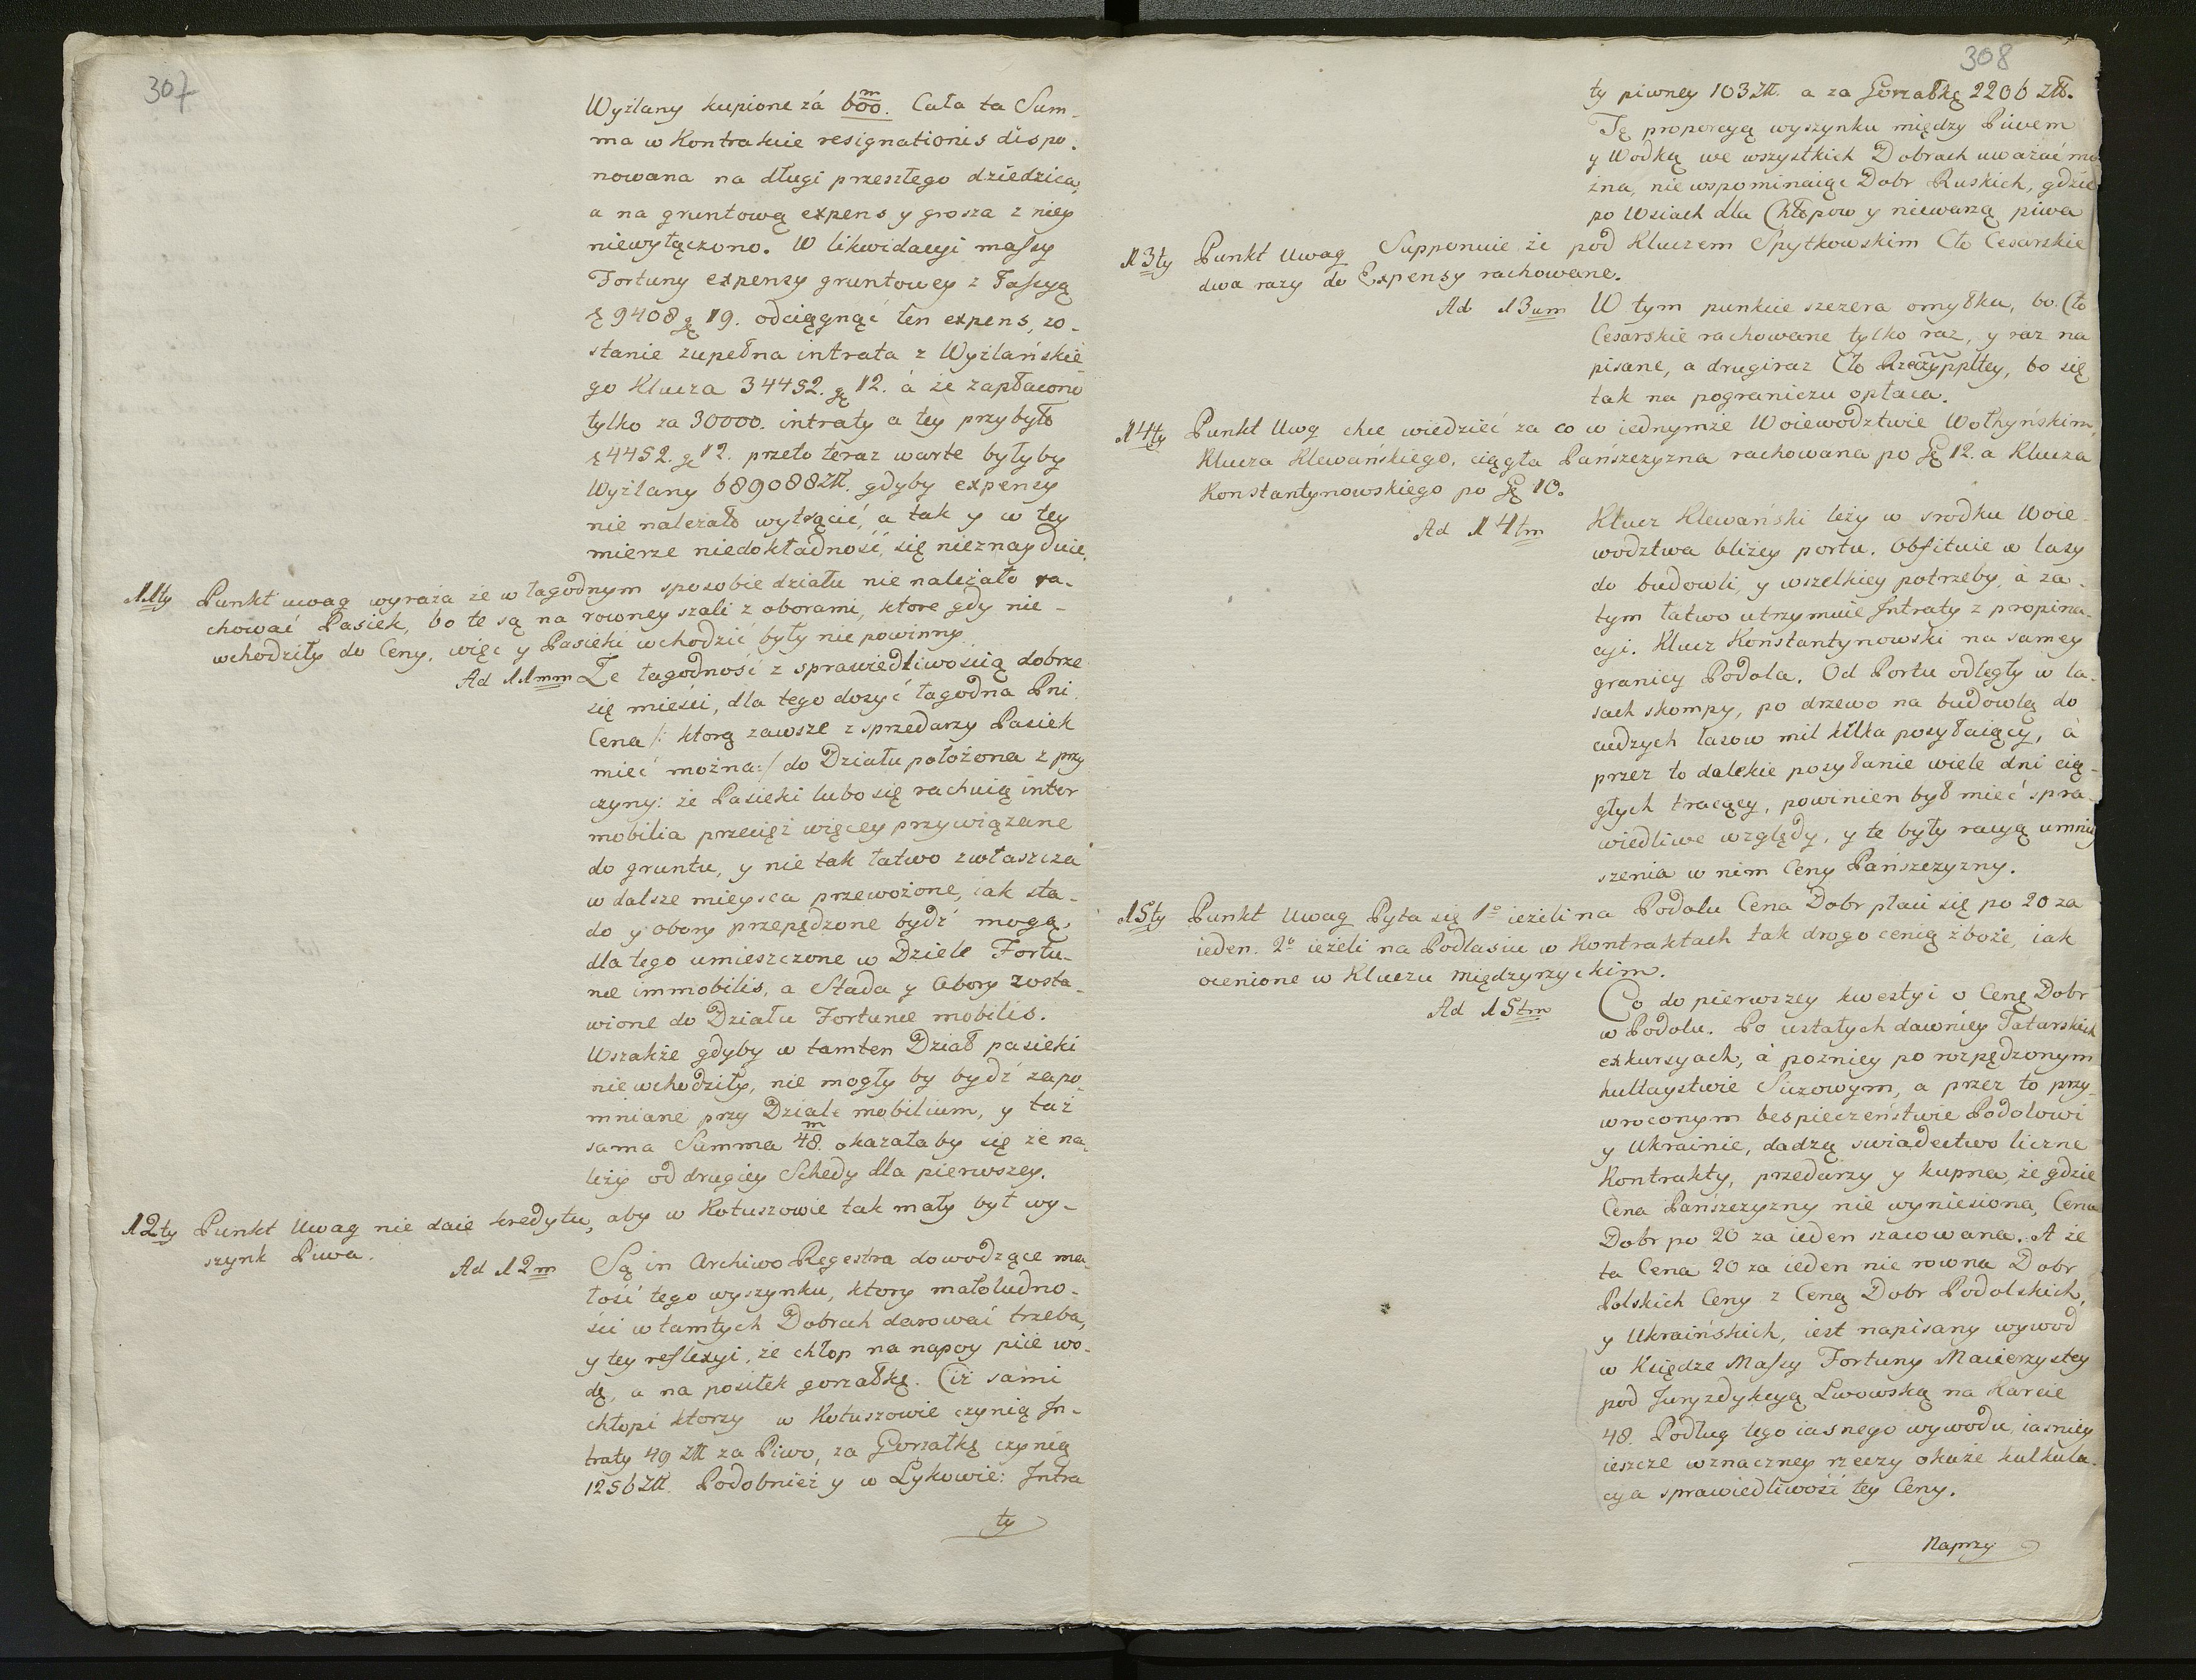 307
Wyżlany kupione zá 600.m Cała ta Sum-
ma w Kontrakcie resignationis dispo-
nowana na długi przeszłego dziedzica,
a na gruntową expens y grosza z niey
niewyłączono. W likwidacyi massy
Fortuny expensy gruntowey z Tassyą
9408 gę 19. odciągnąć ten expens, zo-
stanie zupełna intrata z Wyżlańskie-
go Klucza 34452. gę 12. á że zapłacono
tylko za 30000. intraty a tey przybyło
4452. gę 12. przeto teraz warte byłyby
Wyżlany 689088 Złł. gdyby expensy
nie należało wytrącić, a tak y w tey
mierze niedokładność się nieznayduie.
11ty Punkt uwag wyraża że w łagodnym sposobie działu nie należało ra-
chować Pasiek, bo te są na rowney szali z oborami, ktore gdy nie-
wchodziły do Ceny, więc y Pasieki wchodzić były nie powinny.
Ad 11mm Że łagodność z sprawiedliwością dobrze
się mieści, dla tego dosyć łagodna Pni
Cena /: ktorą zawsze z sprzedarzy Pasiek
mieć można :/ do Działu położona z przy
czyny: że Pasieki lubo się rachuią inter
mobilia przecięż więcey przywiązane
do gruntu, y nie tak łatwo zwłaszcza
w dalsze mieysca przewożone, iak sta-
do y obory przepędzone bydź mogą,
dla tego umieszczone w Dziele Fortu-
næ immobilis, a Stada y Obory zosta-
wione do Działu Fortunæ mobilis.
Wszakże gdyby w tamten Dział pasieki
nie wchodziły, nie mogły by bydź zapo-
mniane przy Dziale mobilium, y taż
sama Summa 48.m okazałaby się że na-
leży od drugiey Schedy dla pierwszey.
12ty Punkt Uwag nie daie kredytu, aby w Kotuszowie tak mały był wy-
szynk Piwa.
Ad 12m Są in Archivo Regestra dowodzące ma-
łość tego wyszynku, ktory małoludno-
ści w tamtych Dobrach darować trzeba,
y tey reflexyi, że chłop na napoy piie wo-
dę, a na posiłek gorzałkę. Ciż sami
chłopi ktorzy w Kotuszowie czynią In-
traty 49 Złł za Piwo, za Gorzałkę czynią
1256 Złł. Podobnież y w Łykowie: Intra
ty
308
ty piwney 103 Złł. a za Gorzałkę 2206 Złł.
Tę proporcyą wyszynku między Piwem
y Wodką we wszystkich Dobrach uważać mo
żna, nie wspominaiąc Dobr Ruskich, gdzie
po Wsiach dla Chłopow y niewarzą piwa
13ty Punkt Uwag Supponuie że pod Kluczem Spytkowskim Cło Cesarskie
dwa razy do Expensy rachowane.
Ad 13um W tym punkcie szczera omyłka, bo Cło
Cesarskie rachowane tylko raz, y raz na
pisane, a drugi raz Cło Rzeczyppltey, bo się
tak na pograniczu opłaca.
14ty Punkt Uwg chce wiedzieć za co w iednymże Woiewodztwie Wołhyńskim,
Klucza Klewańskiego, ciągła Pańszczyzna rachowana po gę 12. a Klucza
Konstantynowskiego po gę 10.
Ad 14tm Klucz Klewański leży w srodku Woie-
wodztwa bliżey portu. Obfituie w lasy
do budowli y wszelkiey potrzeby, á za-
tym łatwo utrzymuie Intraty z propina-
cyi. Klucz Konstantynowski na samey
granicy Podola. Od Portu odległy w la-
sach skompy, po drzewo na budowlą do
cudzych lasow mil kilka posyłaiący, á
przez to dalekie posyłanie wiele dni cią-
głych tracący, powinien był mieć spra-
wiedliwe względy, y te były racyą umniey
szenia w nim Ceny Pańszczyzny.
15ty Punkt Uwag Pyta się 1o ieżeli na Podolu Cena Dobr płaci się po 20 za
ieden. 2o ieżeli na Podlasiu w Kontraktach tak drogo cenią zboże, iak
ocenione w Kluczu międzyrzyckim.
Ad 15tm Co do pierwszey kwestyi o Cenę Dobr
w Podolu. Po ustałych dawniey Tatarskich
exkursyach, á poźniey po rozpędzonym
hultaystwie Siczowym, a przez to przy-
wroconym bespieczeństwie Podolowi
y Ukrainie, dadzą swiadectwo liczne
Kontrakty, przedarzy y kupna, że gdzie
Cena Pańszczyzny nie wyniesiona, Cena
Dobr po 20 za ieden szacowana. A że
ta Cena 20 za ieden nie rowna Dobr
Polskich Ceny z Ceną Dobr Podolskich,
y Ukraińskich, iest napisany wywod
w Księdze Massy Fortuny Macierzystey
pod Juryzdykcyą Lwowską na Karcie
48. Podług tego iasnego wywodu, iasniey
ieszcze w znaczney rzeczy okaże kalkula-
cya sprawiedliwość tey Ceny.
Naprzy